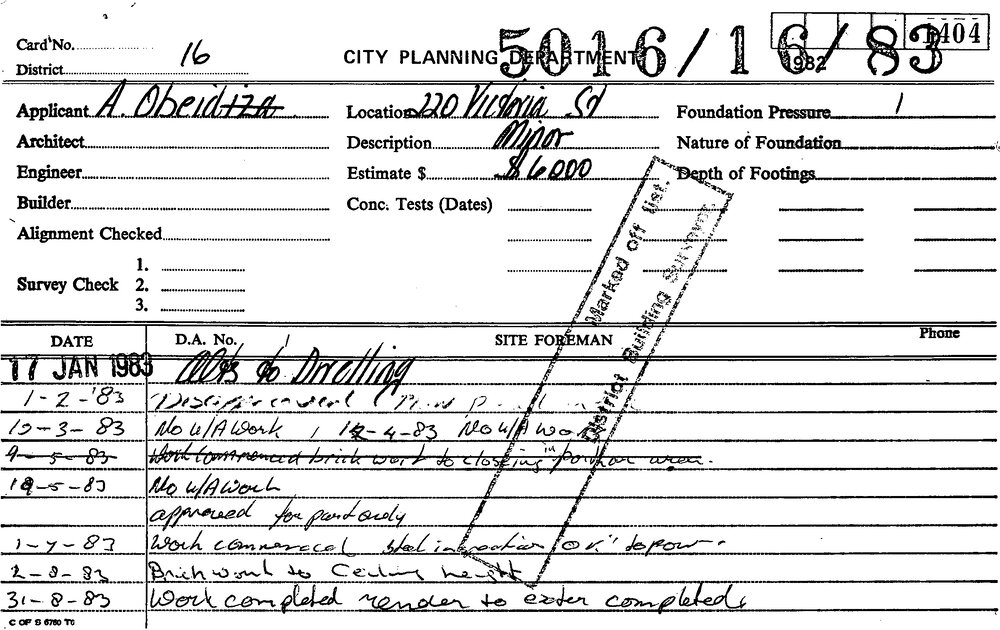 Card No.
5016/16/83
1404
1982
District 16
CITY PLANNING DEPARTMENT
Applicant A. Obeid
Location 220 Victoria St
Foundation Pressure
Architect
Description Minor
Nature of Foundation
Engineer
Estimate $ $6000
Depth of Footings
Builder
Conc. Tests (Dates)
Alignment Checked
Survey Check
1.
2.
3.
Marked off list.
District Building Surveyor.
DATE
D.A. No.
SITE FOREMAN
Phone
17 JAN 1983 Alts to Dwelling
1-2-'83
10-3-83 No W/A Work, 12-4-83 No W/A Wo
9-5-83 Work Commenced brick work to closeing in area.
19-5-83 No W/A Work
approved for part only
1-7-83 Work commenced steel "OK" to pour.
2-8-83 Brickwork to Ceiling height
31-8-83 Work completed render to exter completed.
C OF S 6760 T6